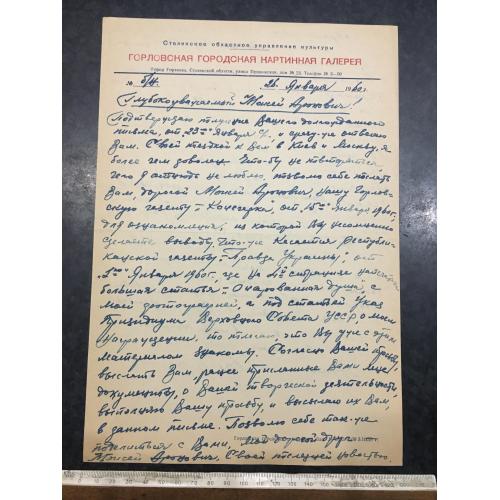 Сталинское областное управление культуры
ГОРЛОВСКАЯ ГОРОДСКАЯ КАРТИННАЯ ГАЛЕРЕЯ
Город Горловка, Сталинской области, улица Пушкинская, дом № 23. Телефон № 3-50
№ 5/4. 26. Января 1960 г.
Глубокоуважаемый Моисей Аронович!
Подтверждаю получение Вашего долгожданного
письма, от 22го Января и сразу-же отвечаю
Вам. Своей поездкой к Вам в Киев и Москву, я
более чем доволен. Что-бы не повторяться,
чего я не люблю, позволю себе послать
Вам, дорогой Моисей Аронович, нашу Горлов-
скую газету "Кочегарка", от 15го Января 1960 г.
для ознакомления, из которой Вы несомненно
сделаете выводы. Что-же касается Республи-
канской газеты "Правда Украины", от
Января 1960 г. где на 4й странице напечатана
большая статья "Очарованная душа", с
моей фотографией, а под статьей Указ
Президиума Верховного Совета УССР, о моем
награждении, то полагаю, что Вы уже с этим
материалом знакомы. Согласно Вашей просьбы
выслать Вам, ранее присланные Вами мне
документы, о Вашей творческой деятельности,
выполняю Вашу просьбу, и высылаю их Вам,
в данном письме. Позволю себе так-же
поделиться с Вами, мой дорогой друг
Моисей Аронович, своей последней новостью.